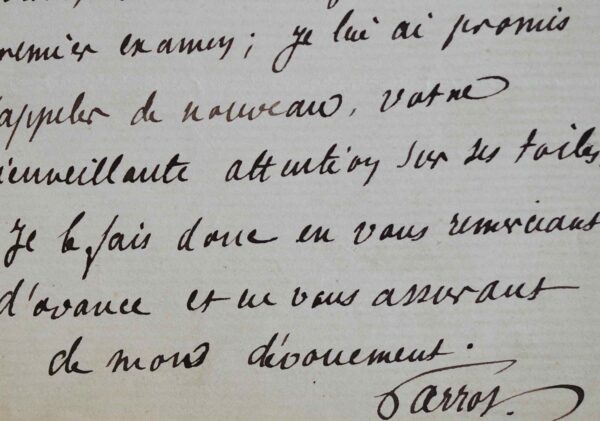 premier examen ; je lui ai promis
d'appeler de nouveau, votre
bienveillante attention sur ses toiles,
Je le fais donc en vous remerciant
d'avance et en vous assurant
de mon dévouement.
Parrot.